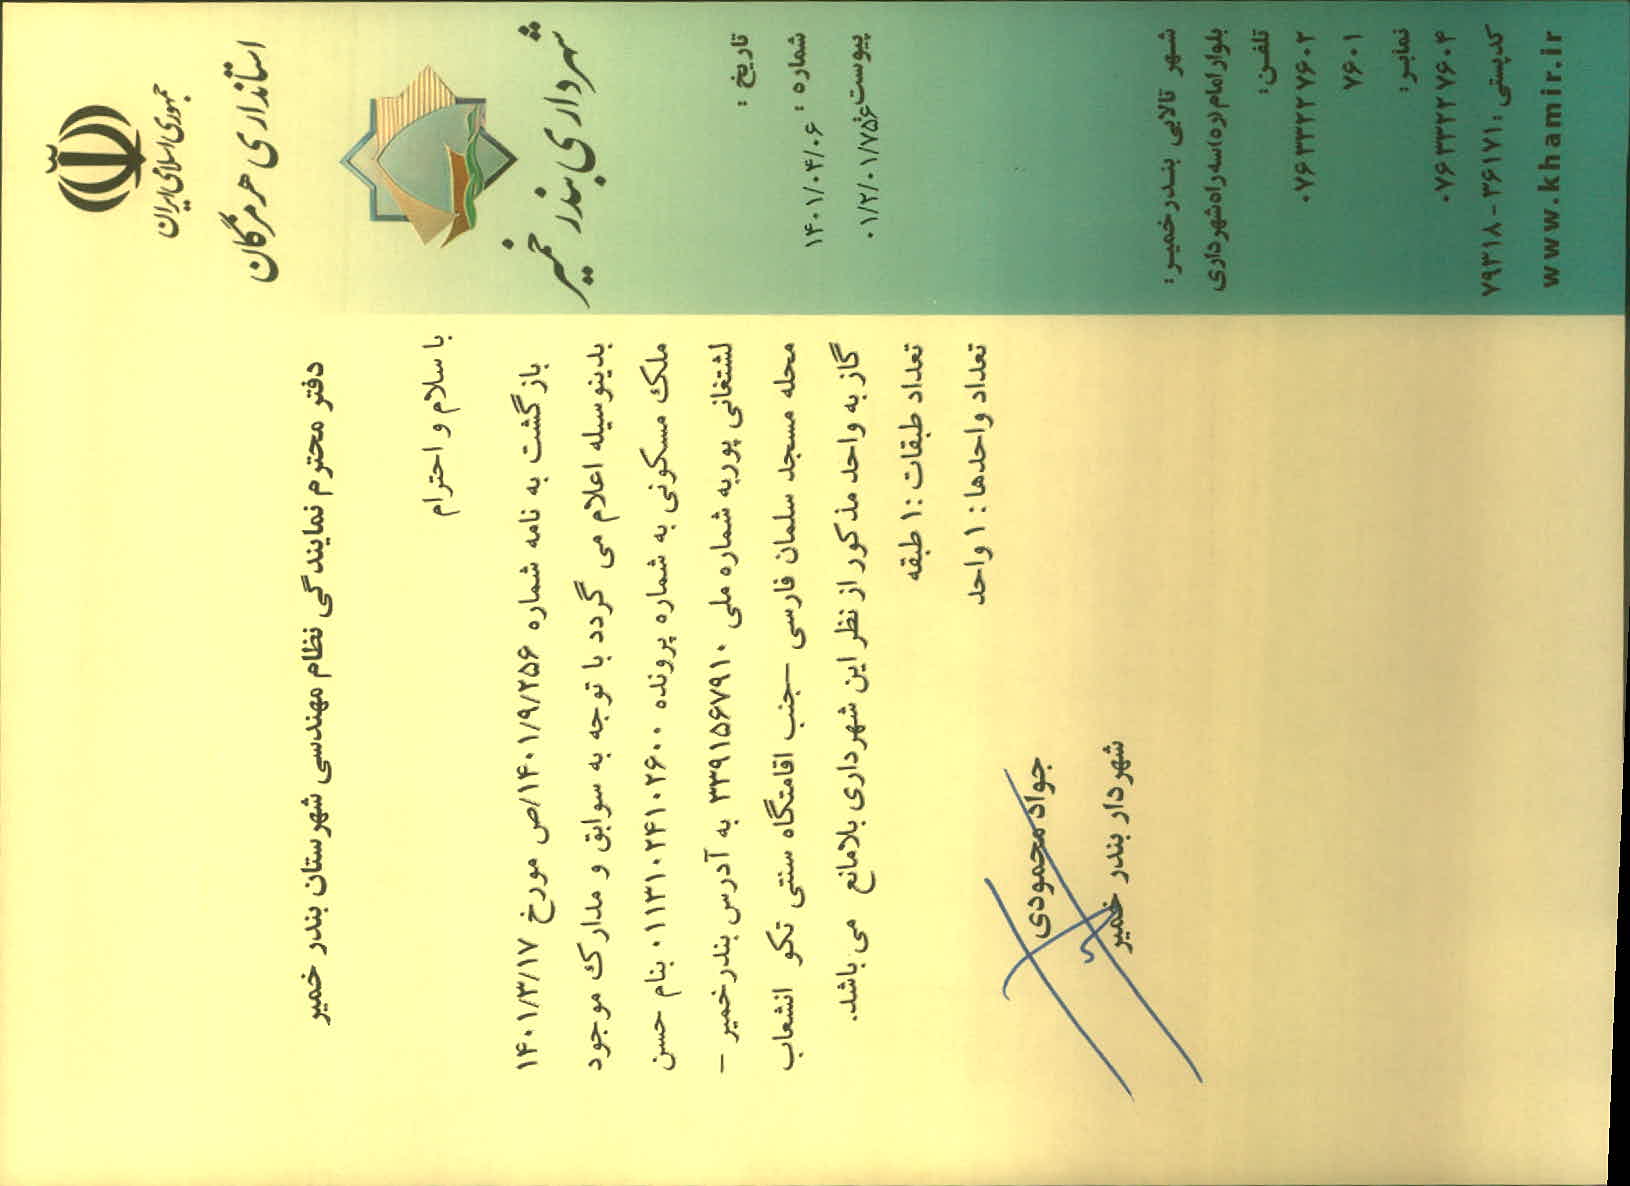 جمهوری اسلامی ایران
استانداری هرمزگان
شهرداری بندر خمیر
تاریخ :
شماره :
۱۴۰۱/۰۴/۰۶
پیوست:
۰۱/۲/۰۱/۷۵۶
شهر تالابی بندرخمیر:
بلوار امام(ره)سه راه شهرداری
تلفن:
۰۷۶۳۳۲۲۷۶۰۲
۷۶۰۱
نمابر:
۰۷۶۳۳۲۲۷۶۰۴
کدپستی :۳۶۱۷۱-۷۹۳۱۸
www.khamir.ir
دفتر محترم نمایندگی نظام مهندسی شهرستان بندر خمیر
با سلام و احترام
بازگشت به نامه شماره ۱۴۰۱/۹/۲۵۶/ص مورخ ۱۴۰۱/۳/۱۷
بدینوسیله اعلام می گردد با توجه به سوابق و مدارک موجود
ملک مسکونی به شماره پرونده ۰۱۱۳۱۰۲۴۱۰۲۶۰۰ بنام حسن
لشتغانی پوربه شماره ملی ۳۳۹۱۵۶۷۹۱۰ به آدرس بندرخمیر –
محله مسجد سلمان فارسی –جنب اقامتگاه سنتی تکو انشعاب
گاز به واحد مذکور از نظر این شهرداری بلامانع می باشد.
تعداد طبقات :۱ طبقه
تعداد واحدها : ۱ واحد
جواد محمودی
شهردار بندر خمیر